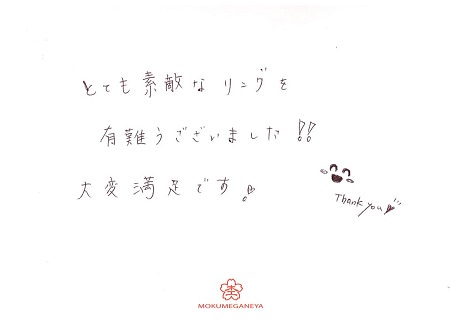 とても素敵なリングを
有難うございました!!
大変満足です!
Thank you
MOKUMEGANEYA